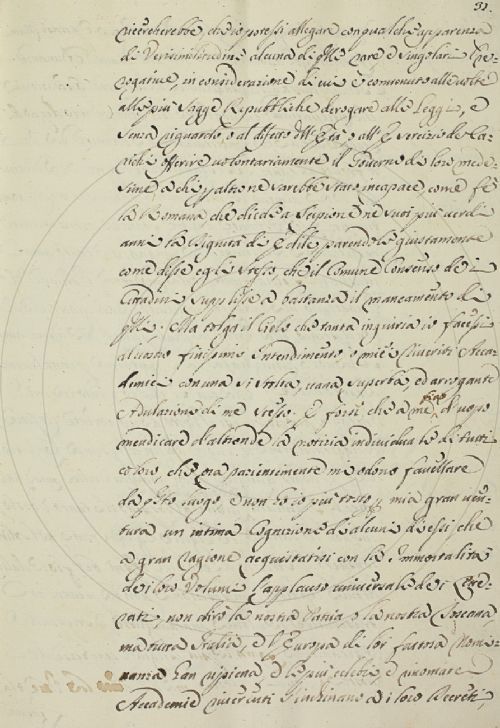 31.
ricercherebbe, che io potessi allegare con qualche apparenza
di Verisimilitudine alcuna di q.lle rare e singolari Pre-
rogative, in considerazione di cui è convenuto alle volte
alle più sagge Repubbliche derogare alle Leggi, e
senza riguardo o al difetto dell'Età, o all'Esercizio de Ca-
richi offerire volontariamente il Governo di loro mede-
sime a chi p altro ne sarebbe stato incapace come fè
la Romana che diede a Scipione ne suoi più verdi
anni la Dignità di Edile, parendole giustamente
come disse egli stesso, che il Comune Consenso de i
Cittadini supplisse a bastanza il mancamento di
q.lli. Ma tolga il Cielo che tanta ingiuria io facessi
al vostro finissimo Intendimento o miei Riveriti Acca-
demici con una sì stolta, vana, superba, ed arrogante
Adulazione di me stesso. E forsi che a me fia d'uopo
mendicare d'altronde la notizia individuale di tutti
coloro, che ora pazientemente mi odono favellare
da q.sto luogo, e non ho io più tosto p mia gran ven-
tura un intima Cognizione di alcuni di essi, che
a gran ragione acquistatisi con la Immortalità
de i loro Volumi l'applauso universale de i Lette-
rati, non dirò la nostra Patria, o la nostra Toscana,
ma tutta Italia, e l'Europa di lor famosa Nomi-
nanza han ripiena, e le più celebri, e rinomate
Accademie riverenti s'inchinano a i loro Decreti,